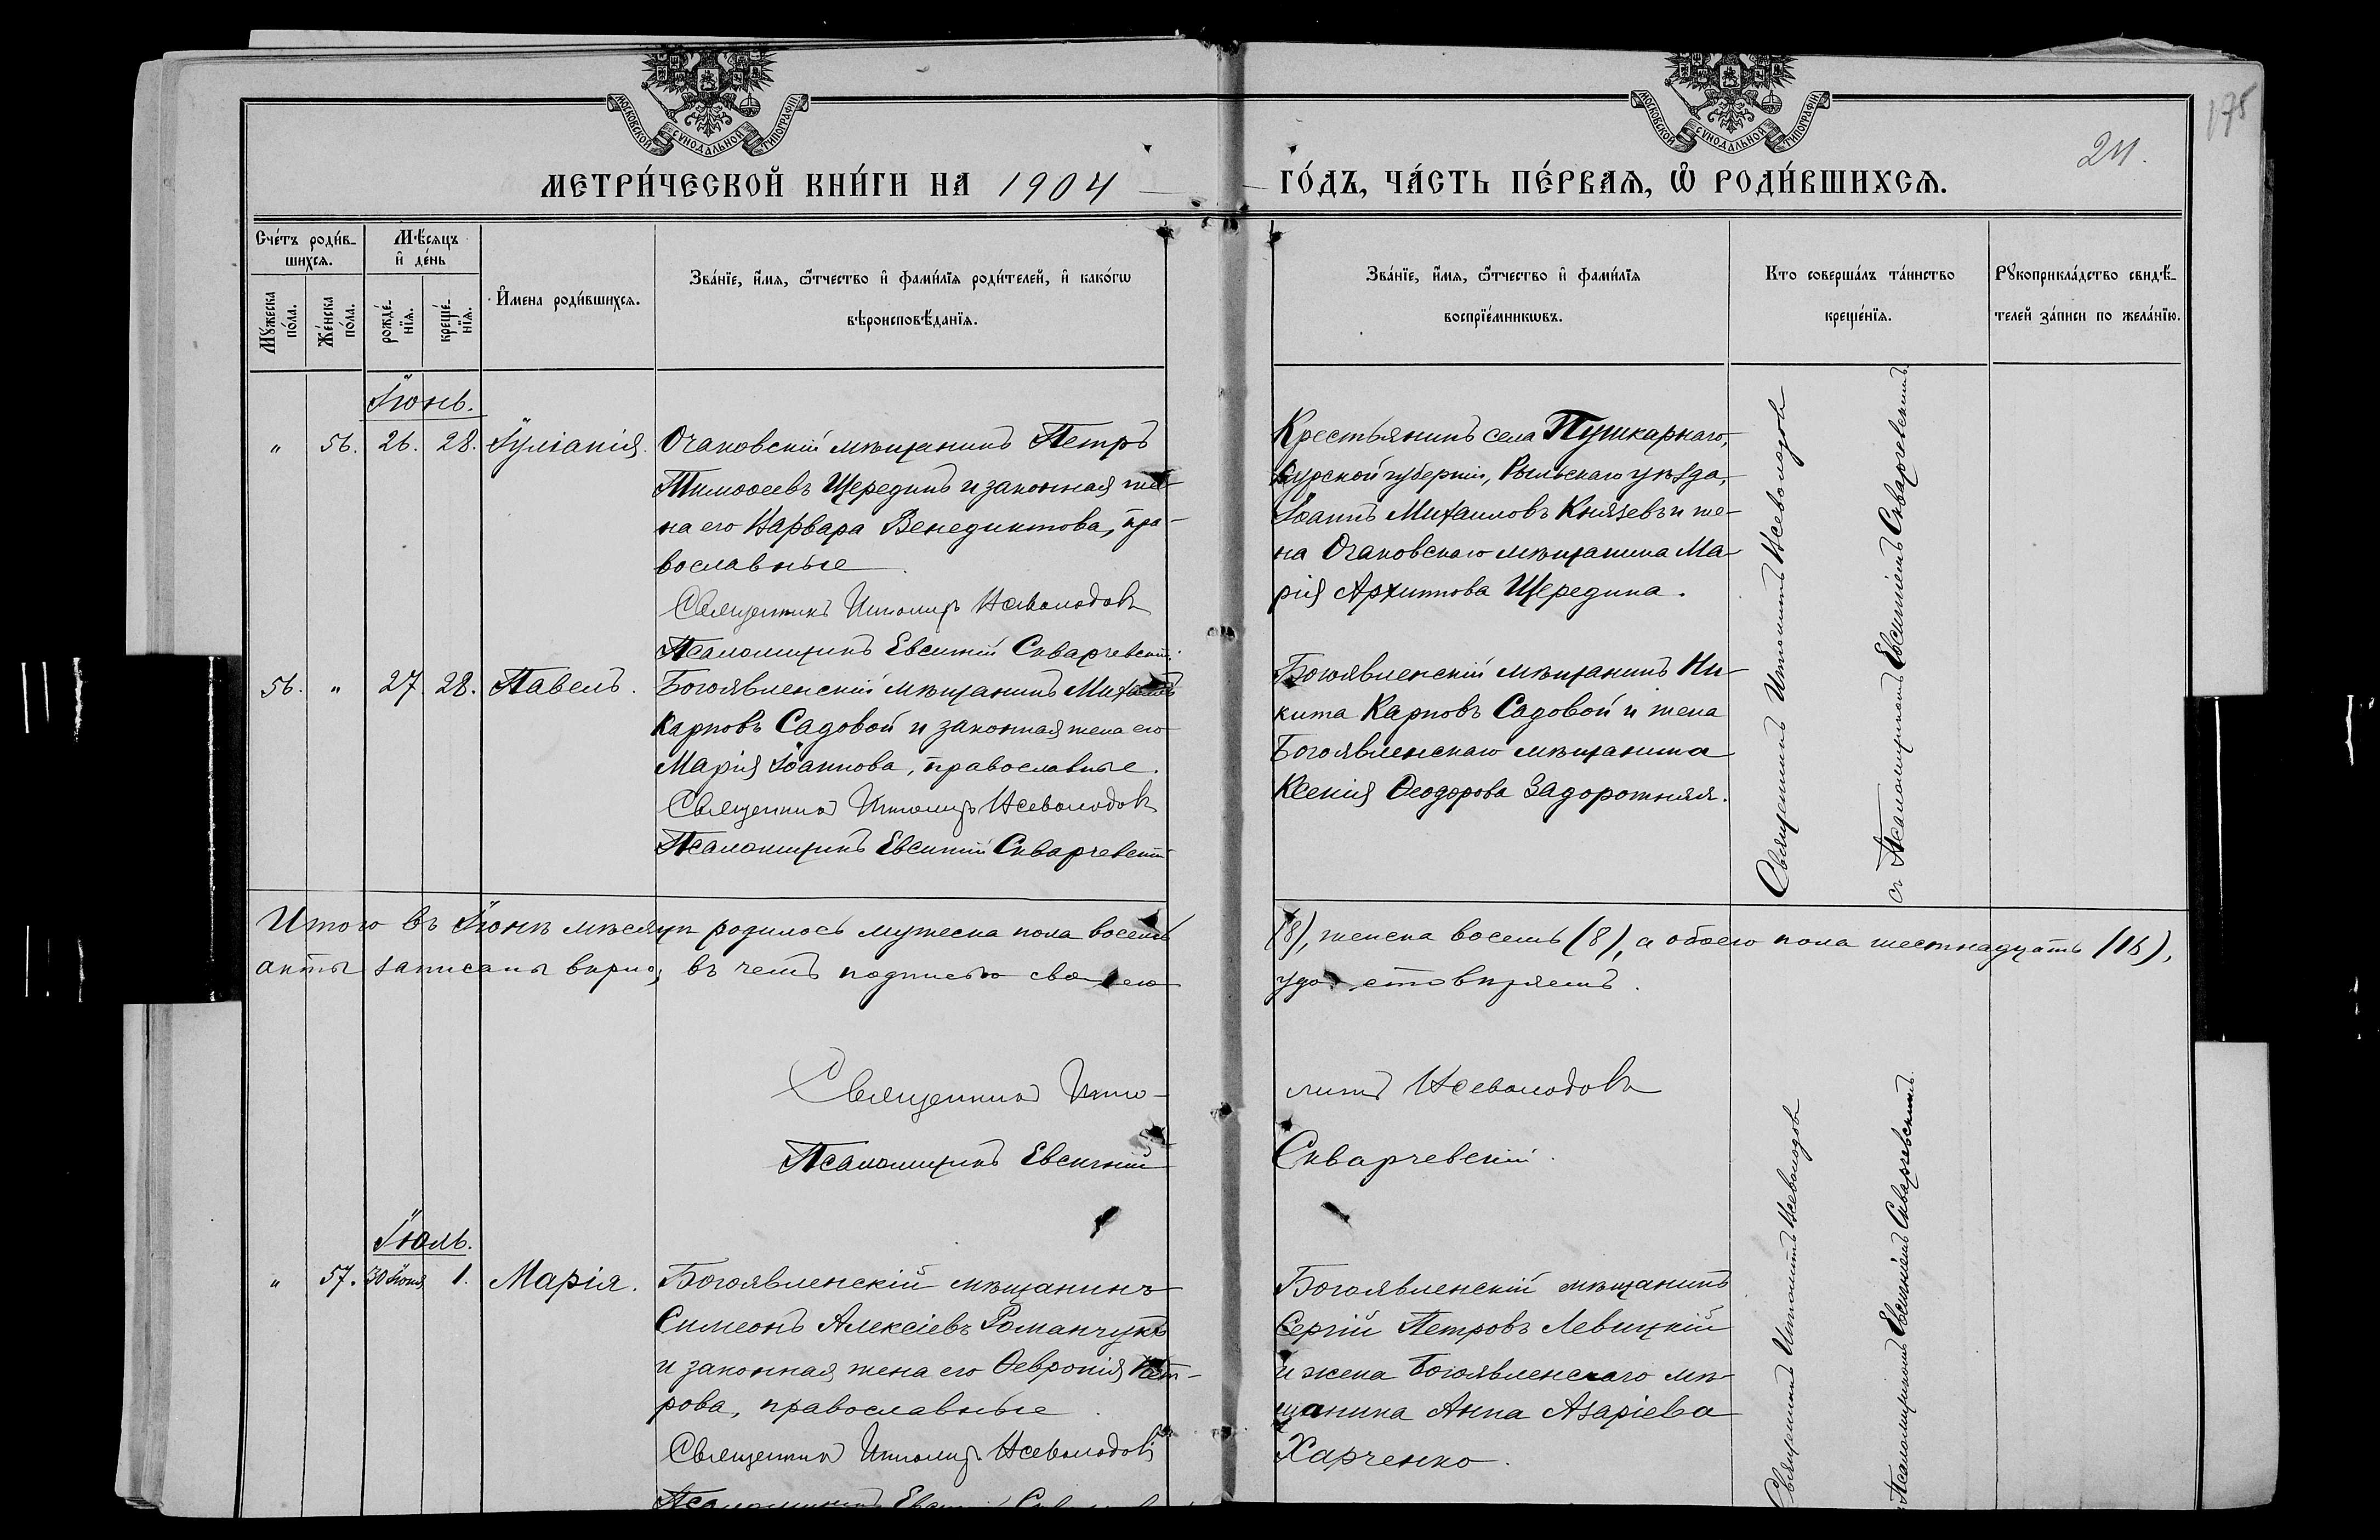 МОСКОВСКОЙ СѴНОДАЛЬНОЙ ТИПОГРАФІИ
МОСКОВСКОЙ СѴНОДАЛЬНОЙ ТИПОГРАФІИ
175
211.
МЕТРИ́ЧЕСКОЙ КНИ́ГИ НА 1904
ГО́ДЪ, ЧА́СТЬ ПЕ́РВАѦ, Ѽ РОДИ́ВШИХСѦ.
Сче́тъ роди́в-
шихсѧ.
Мѣ́сѧцъ
и҆ де́нь
Мꙋ́жеска
по́ла.
Же́нска
по́ла.
рожде́-
нїѧ.
креще́-
нїѧ.
И҆мена роди́вшихсѧ.
Зва́нїе, и҆́мѧ, ѻ҆́тчество и҆ фами́лїѧ роди́телей, и҆ како́гѡ
вѣроисповѣ́данїѧ.
Зва́нїе, и҆́мѧ, ѻ҆́тчество и҆ фами́лїѧ
воспрїе́мникѡвъ.
Кто соверша́лъ та́инство
креще́нїѧ.
Рꙋкоприкла́дство свидѣ́-
телей за́писи по жела́нїю.
Іюнь.
" 56. 26. 28. Іуліанія. Очаковскій мѣщанинъ Петръ
Тимоѳеевъ Щерединъ и законная же-
на его Варвара Венедиктова, пра-
вославные
Священникъ Ипполитъ Всеволодовъ
Псаломщикъ Евсигній Скварчевскій.
Крестьянинъ села Пушкарнаго,
Курской губерніи, Рыльскаго уѣзда,
Іоаннъ Михаиловъ Князевъ и же-
на Очаковскаго мѣщанина Ма-
рія Архиппова Щередина.
56. " 27. 28. Павелъ. Богоявленскій мѣщанинъ Михаилъ
Карповъ Садовой и законная жена его
Марія Іоаннова, православные.
Священникъ Ипполитъ Всеволодовъ
Псаломщикъ Евсигній Скварчевскій
Богоявленскій мѣщанинъ Ни-
кита Карповъ Садовой и жена
Богоявленскаго мѣщанина
Ксенія Ѳеодорова Задорожняя.
Священникъ Ипполитъ Всеволодовъ
съ Псаломщикомъ Евсигніемъ Скварчевскимъ.
Итого въ Іюнѣ мѣсяцѣ родилось мужеска пола восемь (8), женска восемь (8), а обоего пола шестнадцать (16),
акты записаны вѣрно, въ чемъ подписью своею удостовѣряемъ.
Священникъ Иппо-литъ Всеволодовъ
Псаломщикъ Евсигній Скварчевскій.
Іюль.
" 57. 30 Іюня 1. Марія. Богоявленскій мѣщанинъ
Симеонъ Алексіевъ Романчукъ
и законная жена его Ѳевронія Пет-
рова, православные.
Священникъ Ипполитъ Всеволодовъ
Псаломщикъ
Богоявленскій мѣщанинъ
Сергій Петровъ Левицкій
и жена Богоявленскаго мѣ-
щанина Анна Азаріева
Харченко.
Священникъ Ипполитъ Всеволодовъ
Псаломщикомъ Евсигніемъ Скварчевскимъ.